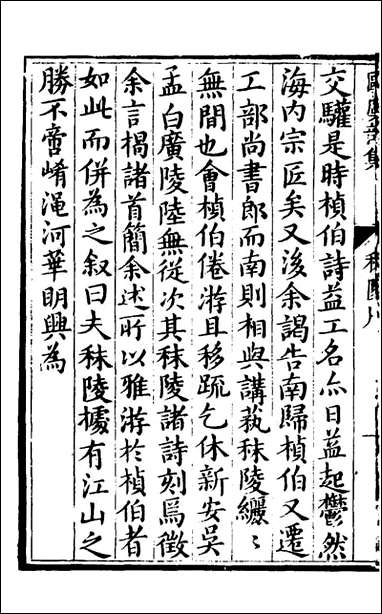 交驩是時楨伯詩益工名亦日益起鬱然
海内宗匠矣又後余謁告南歸楨伯又遷
工部尚書郎而南則相與講蓺秣陵纚〻
無閒也會楨伯倦游且移疏乞休新安吳
孟白廣陵陸無從次其秣陵諸詩刻焉徵
余言楬諸首簡余述所以雅游於楨伯者
如此而併為之叙曰夫秣陵據有江山之
勝不啻崤澠河華明興為